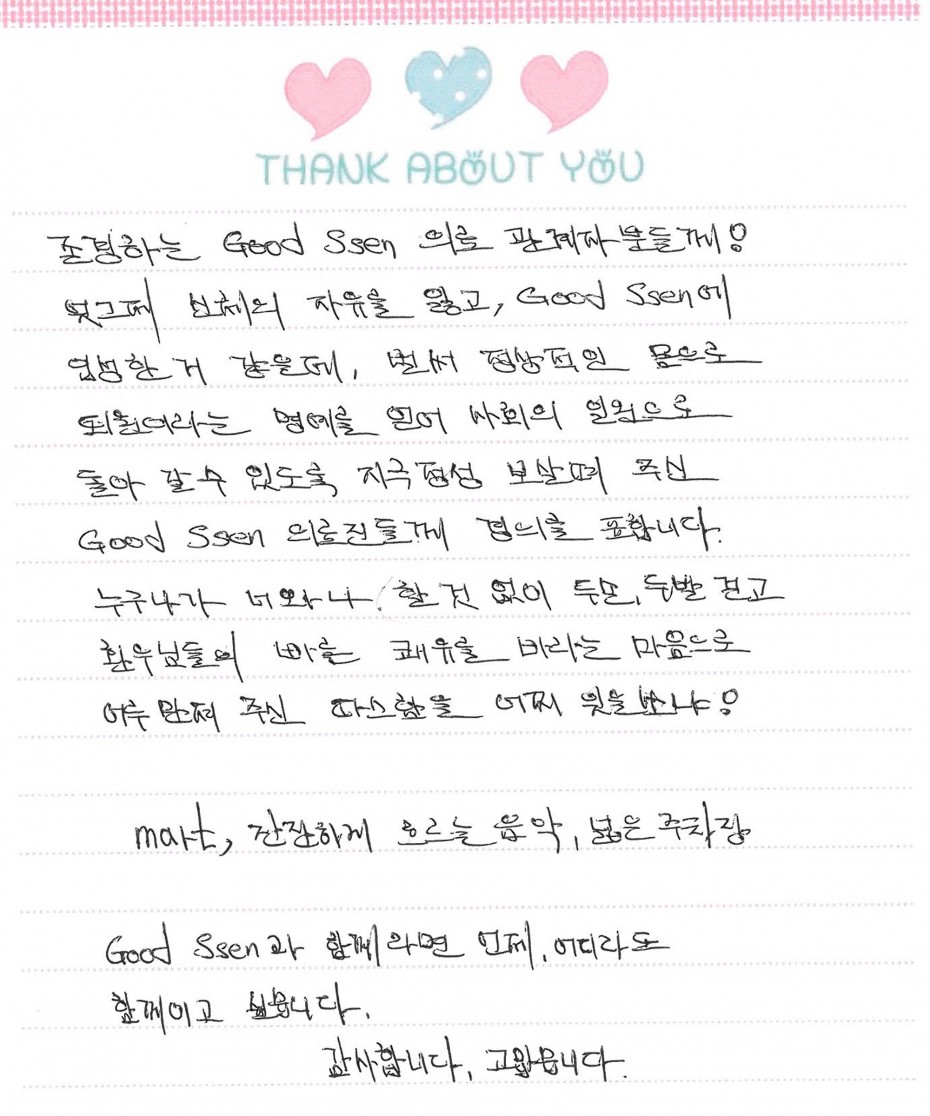 THANK ABOUT YOU
존경하는 Good Ssen 의료 관계자분들께!
엊그제 신체의 자유를 잃고, Good Ssen에
입성한 거 같은데, 벌써 정상적인 몸으로
퇴원이라는 명예를 얻어 사회의 일원으로
돌아 갈 수 있도록, 지극정성 보살펴 주신
Good Ssen 의료진들께 경의를 표합니다.
누구나가 너와나. 할 것 없이 두손, 두발 걷고
환우님들의 빠른 쾌유를 바라는 마음으로
어루만져 주신 따스함을 어찌 잊을쏘냐!
mart, 잔잔하게 흐르는 음악, 넓은 주차장
Good Ssen과 함께라면 언제, 어디라도
함께이고 싶습니다.
감사합니다, 고맙습니다.